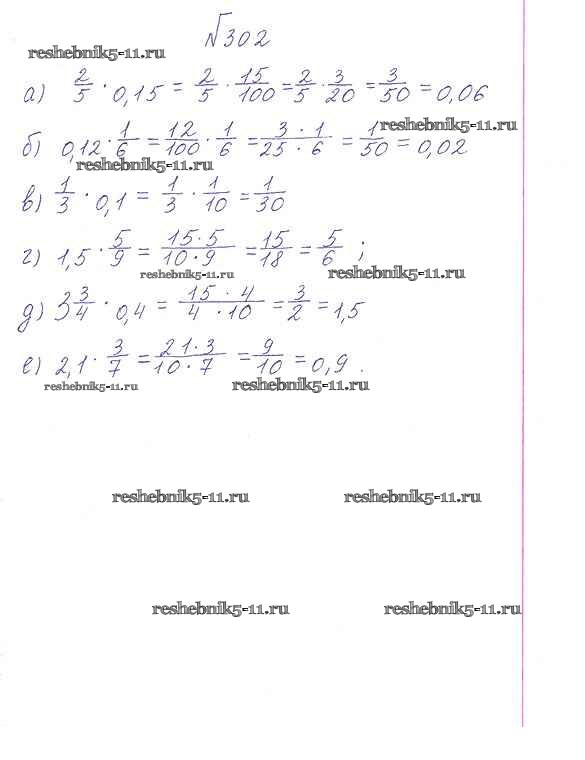 №302
reshebnik5-11.ru
а) 2/5 · 0,15 = 2/5 · 15/100 = 2/5 · 3/20 = 3/50 = 0,06
reshebnik5-11.ru
б) 0,12 · 1/6 = 12/100 · 1/6 = 3 · 1/25 · 6 = 1/50 = 0,02
reshebnik5-11.ru
в) 1/3 · 0,1 = 1/3 · 1/10 = 1/30
г) 1,5 · 5/9 = 15 · 5/10 · 9 = 15/18 = 5/6 ;
reshebnik5-11.ru reshebnik5-11.ru
д) 3 3/4 · 0,4 = 15 · 4/4 · 10 = 3/2 = 1,5
е) 2,1 · 3/7 = 21 · 3/10 · 7 = 9/10 = 0,9 .
reshebnik5-11.ru reshebnik5-11.ru
reshebnik5-11.ru reshebnik5-11.ru
reshebnik5-11.ru reshebnik5-11.ru